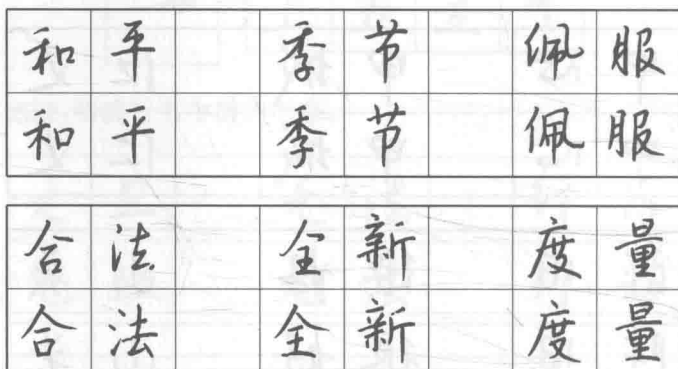 和平 季节 佩服
和平 季节 佩服
合法 全新 度量
合法 全新 度量